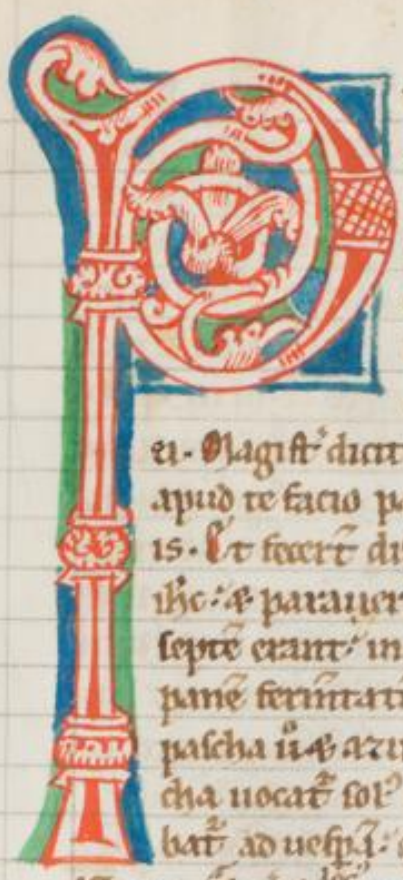 P
ei. Magist᷑ dicit
apud te facio pa
is. Et fecert̄ di
ihc᷑ & parauer
septē erant᷑ in
panē ferm̄tati
pascha
cha uocat᷑ sol᷑
bat᷑ ad uesp̄a᷑